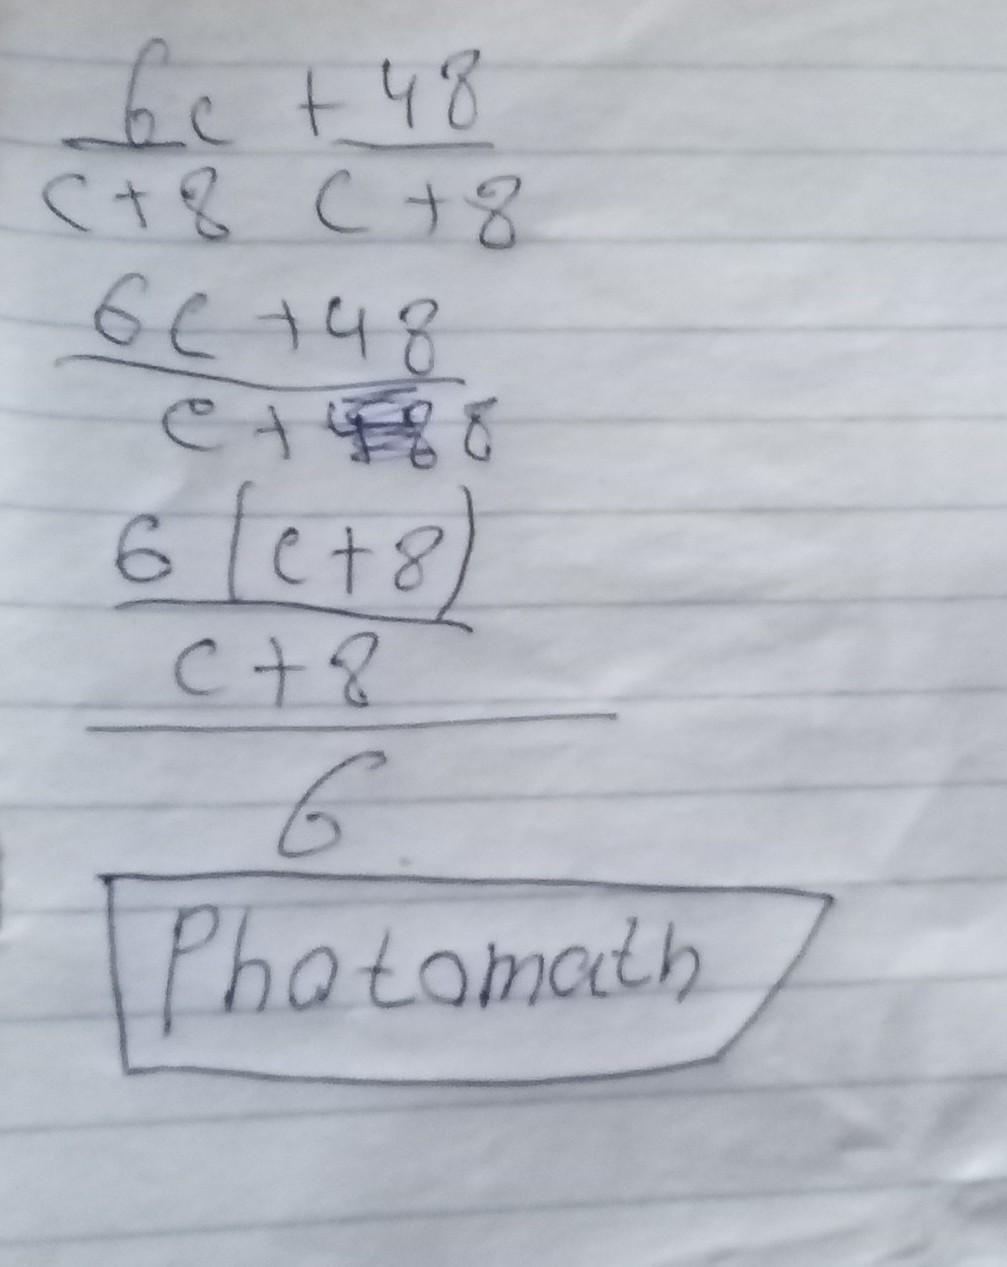 6c + 48
c+8 c+8
6c +48
c+ 8
6 (c+8)
c+8
6
Photomath